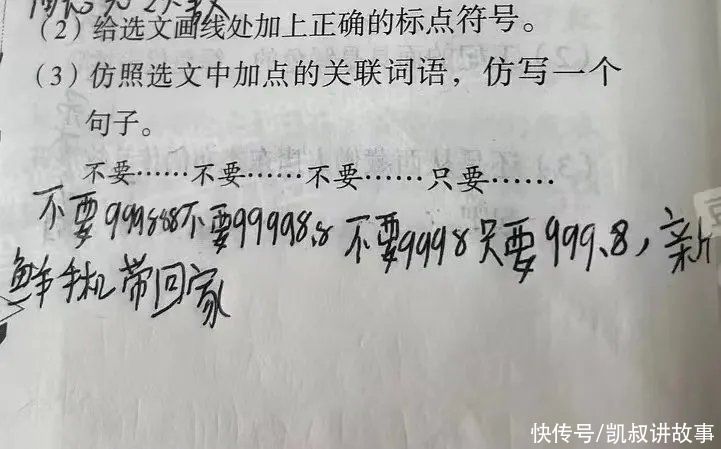 (2) 给选文画线处加上正确的标点符号。
(3) 仿照选文中加点的关联词语，仿写一个
句子。
不要……不要……不要……只要……
不要999888不要99998.8 不要9998只要999.8，新
鲜手机带回家
快传号/凯叔讲故事